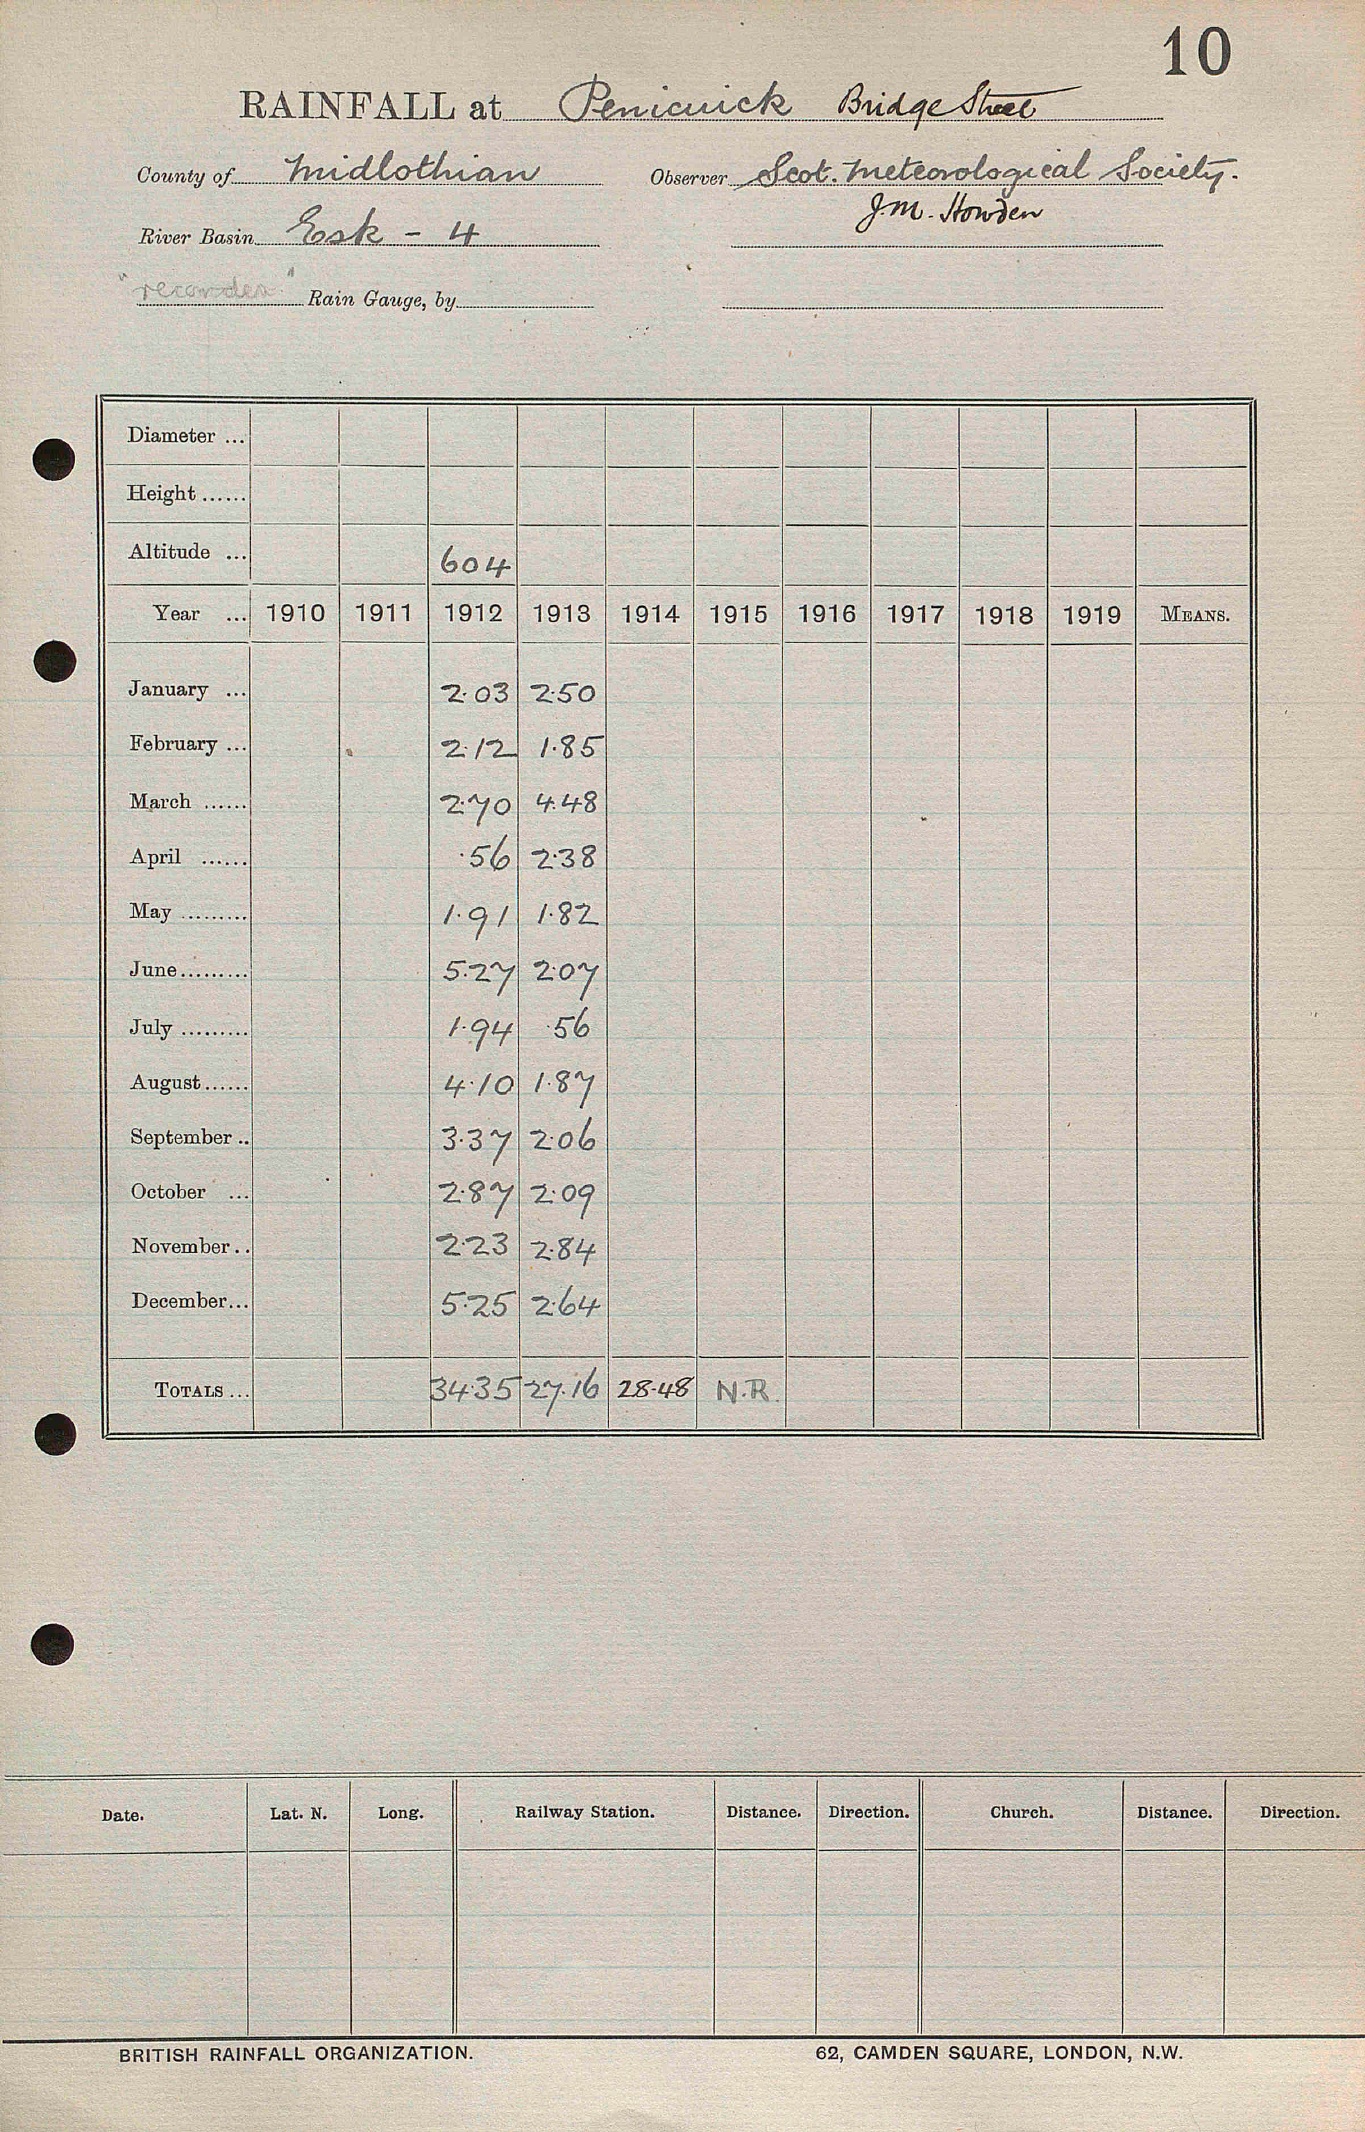 10
RAINFALL at Penicuick Bridge Street
County of Midlothian Observer Scot. Meteorological Society.
J.M. Howden
River Basin Esk - 4
"recorder" Rain Gauge, by
Diameter ...
Height ......
Altitude ... 604
Year ... 1910 1911 1912 1913 1914 1915 1916 1917 1918 1919 MEANS.
January ... 2.03 2.50
February ... 2.12 1.85
March ...... 2.70 4.48
April ...... .56 2.38
May ......... 1.91 1.82
June......... 5.27 2.07
July ......... 1.94 .56
August...... 4.10 1.87
September .. 3.37 2.06
October ... 2.87 2.09
November .. 2.23 2.84
December... 5.25 2.64
TOTALS ... 34.35 27.16 28.48 N.R.
Date. Lat. N. Long. Railway Station. Distance. Direction. Church. Distance. Direction.
BRITISH RAINFALL ORGANIZATION. 62, CAMDEN SQUARE, LONDON, N.W.